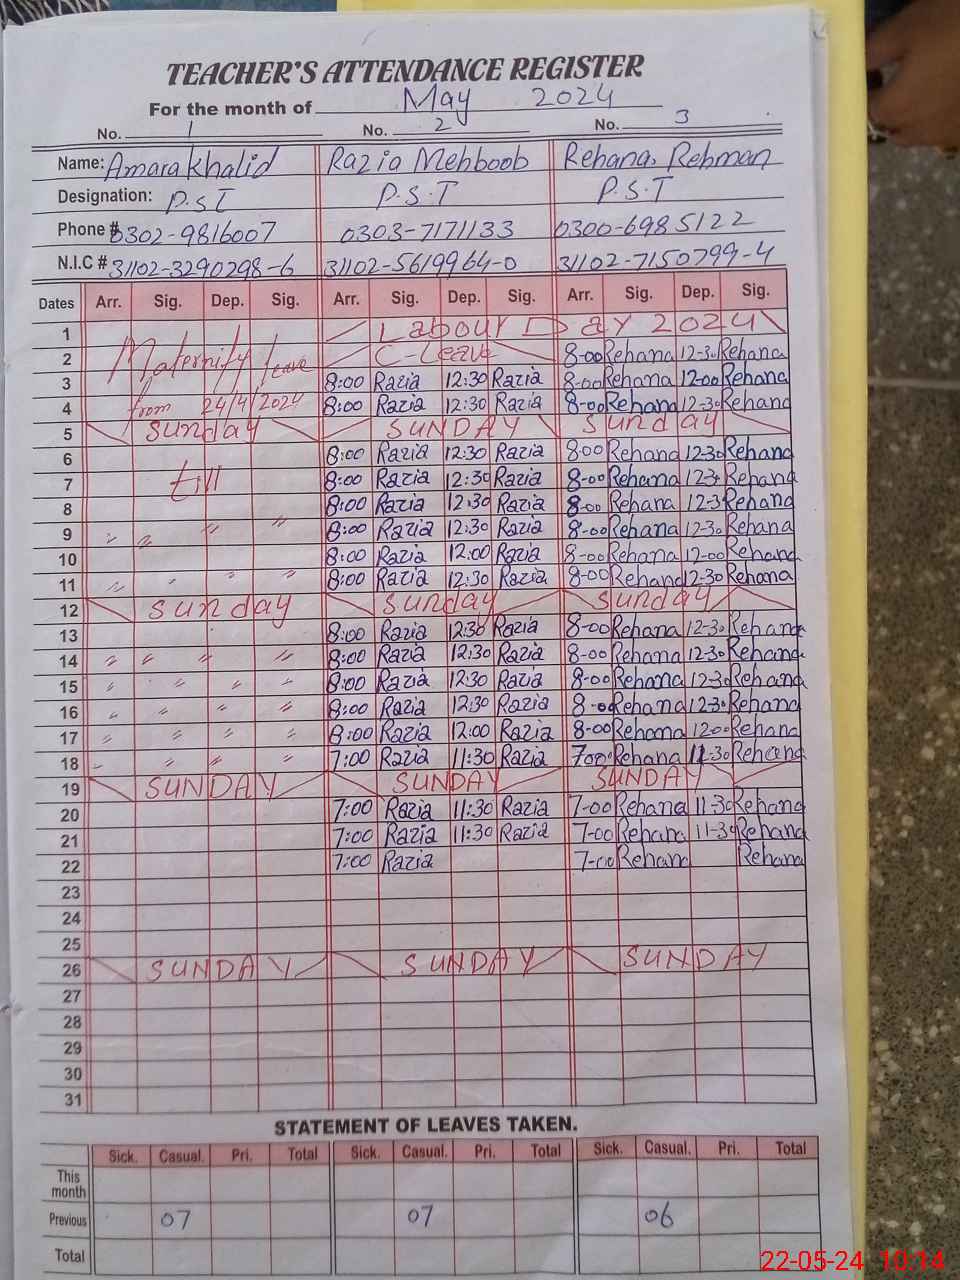 TEACHER'S ATTENDANCE REGISTER
For the month of May 2024
No. 1 No. 2 No. 3
Name: Amara Khalid Razia Mehboob Rehana Rehman
Designation: P.S.T P.S.T P.S.T
Phone # 0302-9816007 0303-7171133 0300-6985122
N.I.C # 31102-3290298-6 31102-5619964-0 31102-7150799-4
Dates Arr. Sig. Dep. Sig. Arr. Sig. Dep. Sig. Arr. Sig. Dep. Sig.
1 Labour Day 2024
2 Maternity leave C-Leave 8-00 Rehana 12-30 Rehana
3 8:00 Razia 12:30 Razia 8-00 Rehana 12-00 Rehana
4 from 24/4/2024 8:00 Razia 12:30 Razia 8-00 Rehana 12-30 Rehana
5 Sunday SUNDAY Sunday
6 8:00 Razia 12:30 Razia 800 Rehana 12-30 Rehana
7 till 8:00 Razia 12:30 Razia 8-00 Rehana 12-3 Rehana
8 8:00 Razia 12:30 Razia 8-00 Rehana 12-3 Rehana
9 " " " " 8:00 Razia 12:30 Razia 8-00 Rehana 12-30 Rehana
10 8:00 Razia 12:00 Razia 8-00 Rehana 12-00 Rehana
11 " " " " 8:00 Razia 12:30 Razia 8-00 Rehana 12-30 Rehana
12 Sunday Sunday Sunday
13 8:00 Razia 12:30 Razia 8-00 Rehana 12-30 Rehana
14 " " " " 8:00 Razia 12:30 Razia 8-00 Rehana 12-30 Rehana
15 " " " " 8:00 Razia 12:30 Razia 8-00 Rehana 12-30 Rehana
16 " " " " 8:00 Razia 12:30 Razia 8-00 Rehana 12-30 Rehana
17 " " " " 8:00 Razia 12:00 Razia 8-00 Rehana 12-00 Rehana
18 " " " " 7:00 Razia 11:30 Razia 7-00 Rehana 11-30 Rehana
19 SUNDAY SUNDAY SUNDAY
20 7:00 Razia 11:30 Razia 7-00 Rehana 11-30 Rehana
21 7:00 Razia 11:30 Razia 7-00 Rehana 11-30 Rehana
22 7:00 Razia 7-00 Rehana Rehana
23
24
25
26 SUNDAY SUNDAY SUNDAY
27
28
29
30
31
STATEMENT OF LEAVES TAKEN.
Sick. Casual. Pri. Total Sick. Casual. Pri. Total Sick. Casual. Pri. Total
This month
Previous 07 07 06
Total
22-05-24 10:14